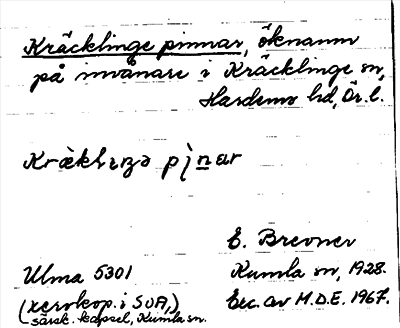 Kräcklinge pinnar, öknamn
på invånare i Kräcklinge sn,
Hardemo hd, Ör. l.
Kräklıŋə pı̣nar
E. Brevner
Ulma 5301
Kumla sn, 1928.
(xerokop. i SOA,)
särsk. kapsel, Kumla sn.
Exc. av M.D.E. 1967.